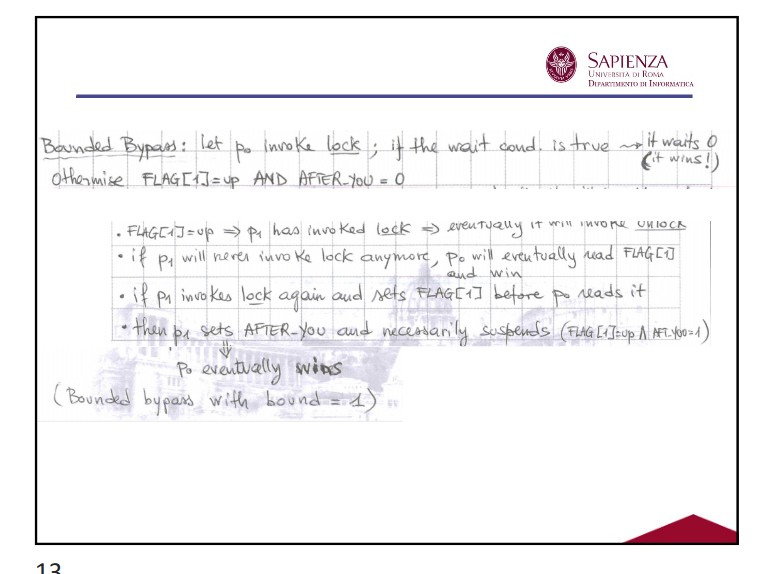 SAPIENZA
UNIVERSITÀ DI ROMA
DIPARTIMENTO DI INFORMATICA
Bounded Bypass: let p0 invoke lock; if the wait cond. is true ⤳ it waits 0
(it wins!)
Othermise FLAG[1]=up AND AFTER_YOU = 0
. FLAG[1]=up ⇒ p1 has invoked lock ⇒ eventually it will invoke unlock
• if p1 will never invoke lock anymore, p0 will eventually read FLAG[1]
and win
• if p1 invokes lock again and sets FLAG[1] before p0 reads it
• then p1 sets AFTER_YOU and necessarily suspends (FLAG[1]=up ∧ AFT_YOU=1)
⇓
p0 eventually wins
(Bounded bypass with bound = 1)
13